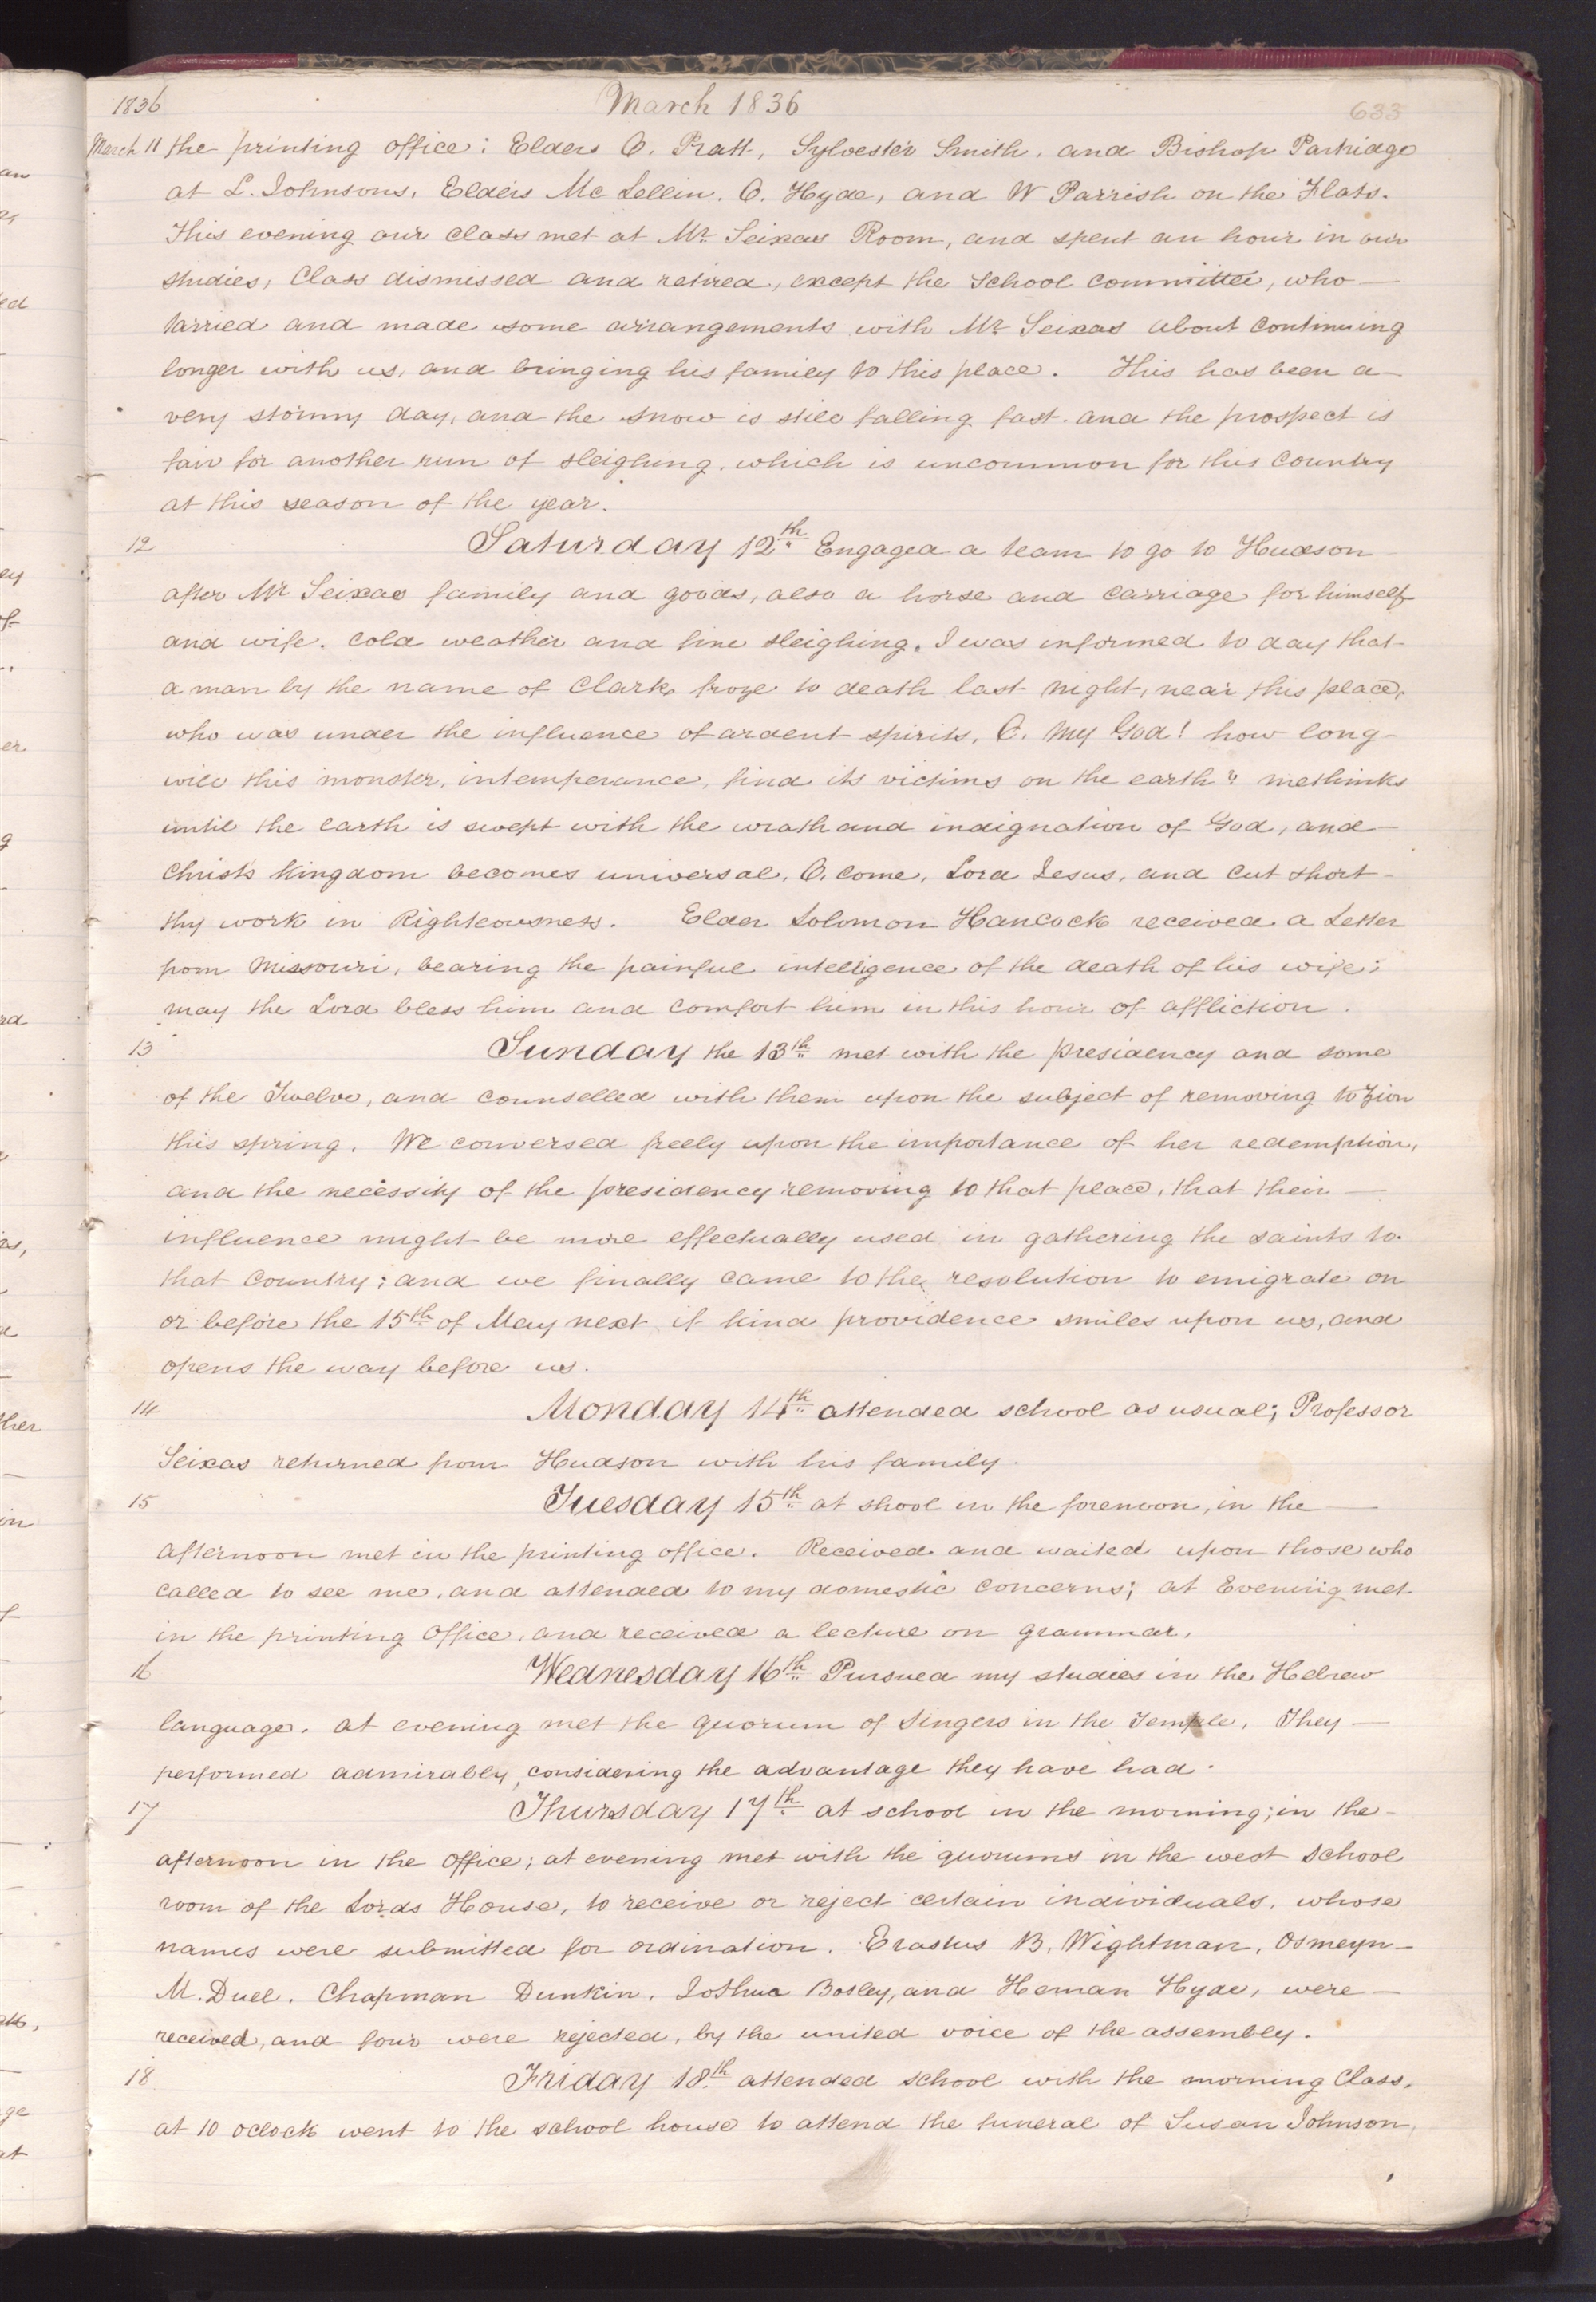 1836 March 1836 633
March 11 the printing office; Elders O. Pratt, Sylvester Smith, and Bishop Partridge
at L. Johnsons, Elders Mc Lellin. O. Hyde, and W Parrish on the Flats.
This evening our class met at Mr. Seixas Room, and spent an hour in our
studies, Class dismissed and retired, except the School committee, who
tarried and made some arrangements with Mr Seixas about continuing
longer with us, and bringing his family to this place. This has been a
very stormy day, and the snow is still falling fast. and the prospect is
fair for another run of sleighing, which is uncommon for this country
at this season of the year.
12 Saturday 12th Engaged a team to go to Hudson
after Mr Seixas family and goods, also a horse and carriage for himself
and wife. cold weather and fine sleighing. I was informed to day that
a man by the name of Clark froze to death last night, near this place,
who was under the influence of ardent spirits. O. My God! how long
will this monster, intemperance, find its victims on the earth? methinks
until the earth is swept with the wrath and indignation of God, and
Christs kingdom becomes universal. O. come, Lord Jesus, and cut short
thy work in Righteousness. Elder Solomon Hancock received a Letter
from Missouri, bearing the painful intelligence of the death of his wife;
may the Lord bless him and comfort him in this hour of affliction.
13 Sunday the 13th met with the presidency and some
of the Twelve, and counselled with them upon the subject of removing to Zion
this spring. We conversed freely upon the importance of her redemption,
and the necessity of the presidency removing to that place, that their
influence might be more effectually used in gathering the saints to
that country; and we finally came to the resolution to emigrate on
or before the 15th of May next if kind providence smiles upon us, and
opens the way before us.
14 Monday 14th attended school as usual; Professor
Seixas returned from Hudson with his family.
15 Tuesday 15th at shool in the forenoon, in the
afternoon met in the printing office. Received and waited upon those who
called to see me, and attended to my domestic concerns; at Evening met
in the printing Office, and received a lecture on grammar.
16 Wednesday 16th Pursued my studies in the Hebrew
language. at evening met the quorum of Singers in the Temple, They
performed admirably, considering the advantage they have had.
17 Thursday 17th at school in the morning; in the
afternoon in the office; at evening met with the quorums in the west School
room of the Lords House, to receive or reject certain individuals, whose
names were submitted for ordination. Erastus B, Wightman, Osmeyn
M. Duel. Chapman Dunkin, Joshua Bosley, and Heman Hyde, were
received, and four were rejected, by the united voice of the assembly.
18 Friday 18th attended school with the morning Class,
at 10 oclock went to the school house to attend the funeral of Susan Johnson,